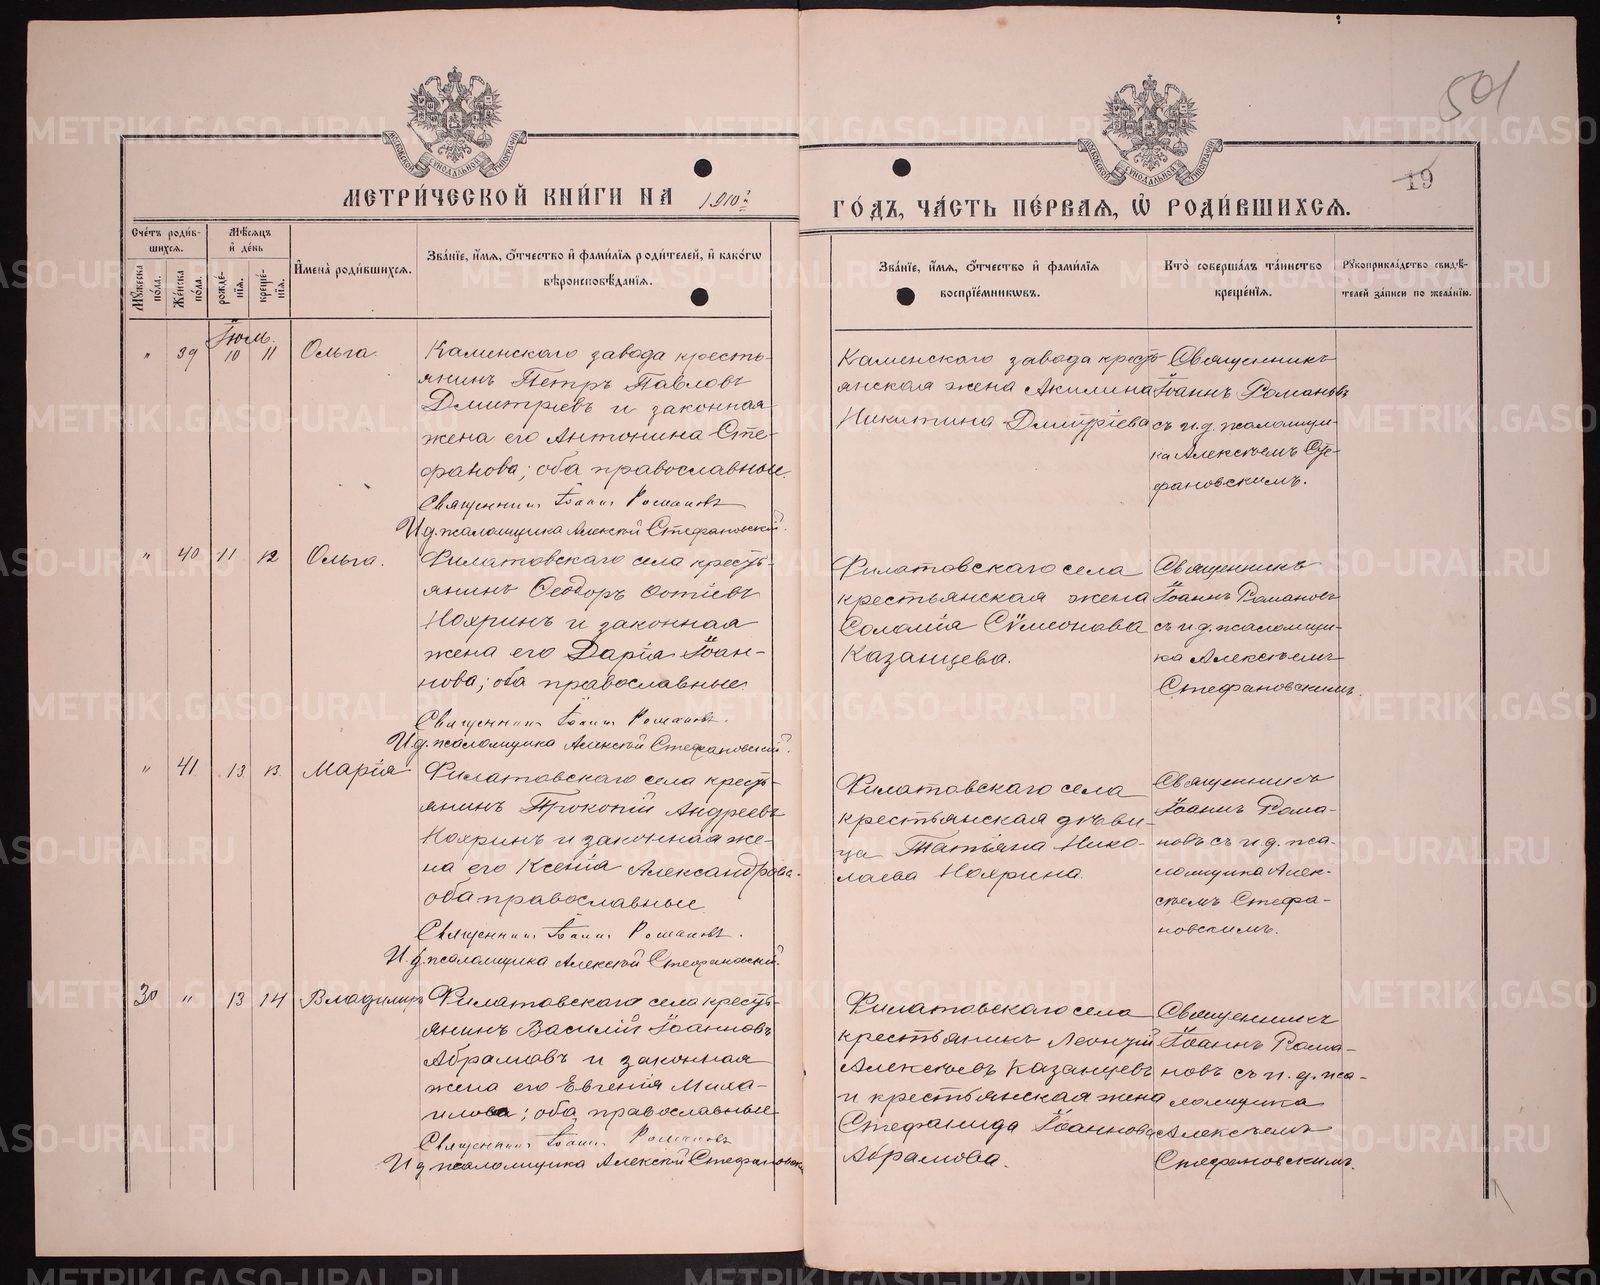 501
19
МОСКОВСКОЙ СУНОДАЛЬНОЙ ТИПОГРАФІИ
МОСКОВСКОЙ СУНОДАЛЬНОЙ ТИПОГРАФІИ
МЕТРИ́ЧЕСКОЙ КНИ́ГИ НА 1910 г.
ГО́ДЪ, ЧА́СТЬ ПЕ́РВАЯ, Ѡ҆ РОДИ́ВШИХСЯ.
Сче́тъ роди́в-
шихся.
Мѣ́сяцъ
и҆ де́нь
Му́жеска
по́ла.
Же́нска
по́ла.
рожде́-
нїя.
креще́-
нїя.
И҆мена̀ роди́вшихся.
Зва́нїе, и҆́мя, ѻ҆́тчество и҆ фами́лїя роди́телей, и҆ како́гѡ
вѣроисповѣ́данїя.
Зва́нїе, и҆́мя, ѻ҆́тчество и҆ фами́лїя
воспрїе́мниковъ.
Кто̀ соверша́лъ та́инство
креще́нїя.
Рꙋкоприкла́дство свидѣ́-
телей за́писи по жела́нїю.
Іюль.
" 39 10 11 Ольга.
Каменскаго завода кресть-
янинъ Петръ Павловъ
Дмитріевъ и законная
жена его Антонина Сте-
фанова; оба православные.
Священникъ Іоаннъ Романовъ
И д. псаломщика Алексѣй Стефановскій.
Каменскаго завода кресть-
янская жена Акилина
Никитина Дмитріева
Священникъ
Іоаннъ Романовъ
съ и. д. псаломщи-
ка Алексѣемъ Сте-
фановскимъ.
" 40 11 12 Ольга.
Филатовскаго села кресть-
янинъ Ѳеодоръ Фотіевъ
Нохринъ и законная
жена его Дарія Іоан-
нова; оба православные.
Священникъ Іоаннъ Романовъ.
И д. псаломщика Алексѣй Стефановскій.
Филатовскаго села
крестьянская жена
Соломія Сѵмеонова
Казанцева.
Священникъ
Іоаннъ Романовъ
съ и д. псаломщи-
ка Алексѣемъ
Стефановскимъ.
" 41. 13 13. Марія
Филатовскаго села кресть-
янинъ Прокопій Андреевъ
Нохринъ и законная же-
на его Ксенія Александрова.
оба православные
Священникъ Іоаннъ Романовъ.
И. д. псаломщика Алексѣй Стефановскій.
Филатовскаго села
крестьянская дѣви-
ца Татьяна Нико-
лаева Нохрина.
Священникъ
Іоаннъ Рома-
новъ съ и д. пса-
ломщика Алек-
сѣемъ Стефа-
новскимъ.
30 " 13 14 Владимиръ
Филатовскаго села кресть-
янинъ Василій Іоанновъ
Абрамовъ и законная
жена его Евгенія Миха-
илова; оба православные
Священникъ Іоаннъ Романовъ
И д. псаломщика Алексѣй Стефановскій
Филатовскаго села
крестьянинъ Леонтій
Алексѣевъ Казанцевъ
и крестьянская жена
Стефанида Іоаннова
Абрамова.
Священникъ
Іоаннъ Рома-
новъ съ и. д. пса-
ломщика
Алексѣемъ
Стефановскимъ.
METRIKI.GASO-URAL.RU